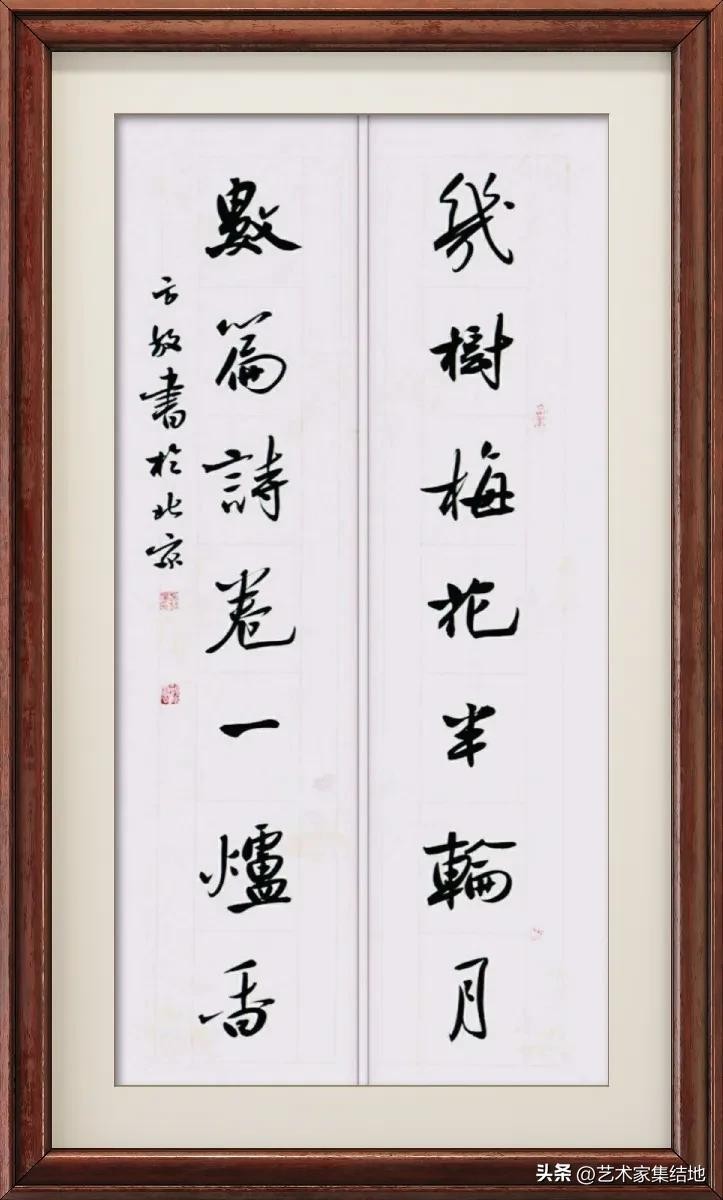 幾樹梅花半輪月
數篇詩卷一爐香
方敏書於北京
头条 @艺术家集结地